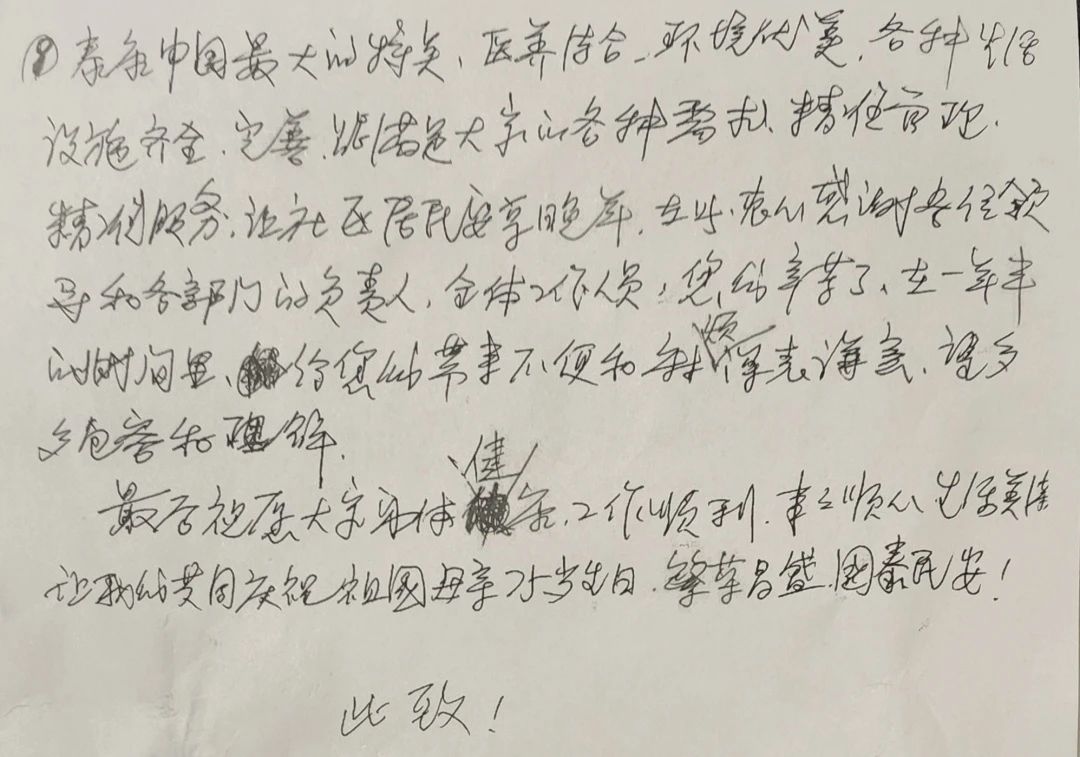 ⑧泰康中国最大的特点、医养结合、环境优美、各种生活
设施齐全、完善、能满足大家的各种需求、精准管理、
精细服务、让社区居民安享晚年、在此、衷心感谢各位领
导和各部门的负责人、全体工作人员、您们辛苦了、在一年半
的时间里、给您们带来不便和麻烦深表海意、望多
多包容和理解、
最后祝愿大家身体健康、工作顺利、事事顺心生活美满
让我们共同庆祝祖国母亲75岁生日、繁荣昌盛、国泰民安！
此致！